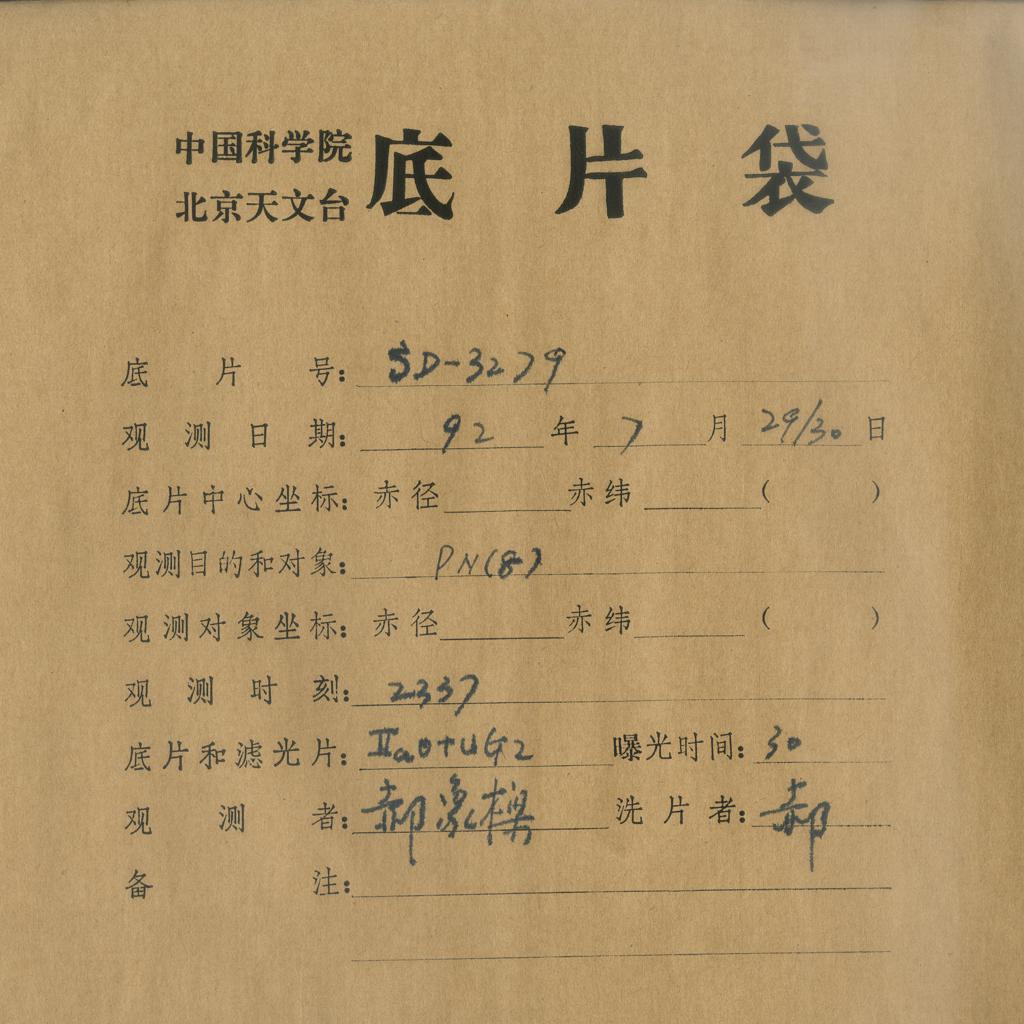 中国科学院
北京天文台
底片袋
底片号: SD-3279
观测日期: 92年7月29/30日
底片中心坐标: 赤径 赤纬 ( )
观测目的和对象: PN(8)
观测对象坐标: 赤径 赤纬 ( )
观测时刻: 2337
底片和滤光片: IIaO+UG2 曝光时间: 30
观测者: 郝象樑 洗片者: 郝
备注: